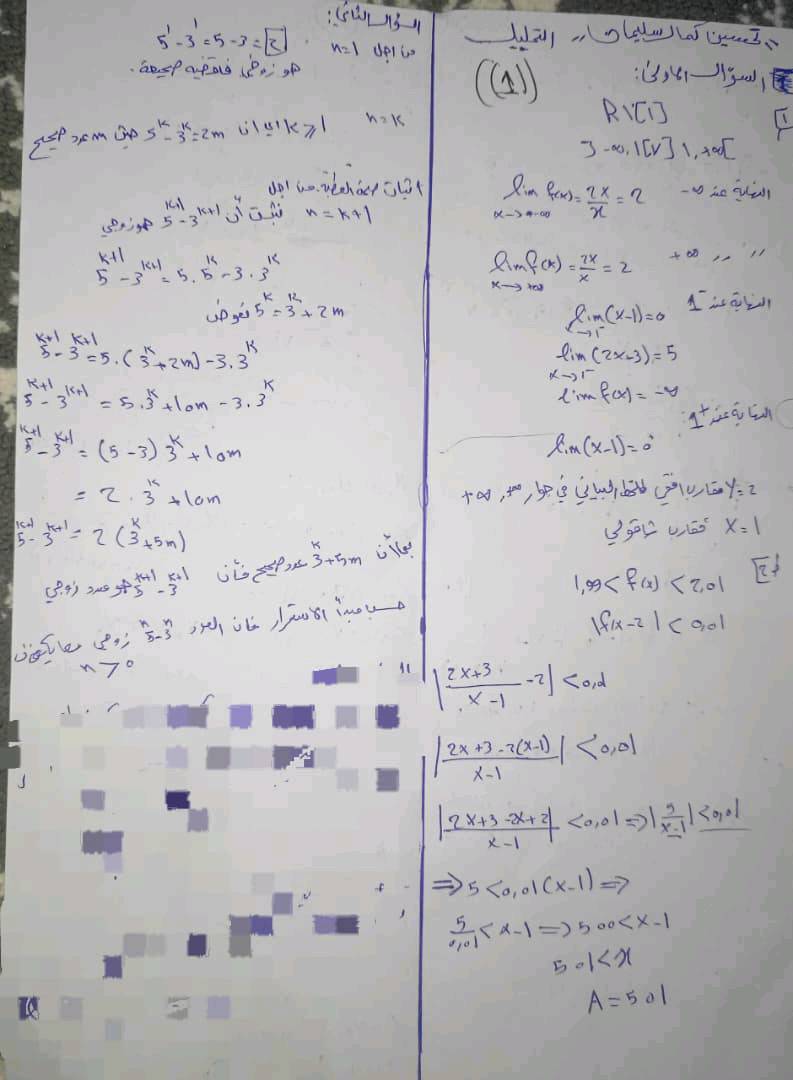 السؤال الأول:
((1))
R\[1]
]-∞,1[∪]1,+∞[
النهاية عند -∞ lim f(x) = 2x/x = 2
x→-∞
+∞ ,, ,, lim f(x) = 2x/x = 2
x→+∞
النهاية عند 1⁻
lim(x-1)=0
→1⁻
lim(2x-3)=5
x→1⁻
lim f(x) = -∞
النهاية عند 1⁺
lim(x-1)=0
y=2 مقارب افقي للخط البياني في جوار
x=1 مقارب شاقولي
[2
1,99 < f(x) < 2,01
|f(x-2| < 0,01
|2x+3/x-1 -2| < 0,01
|2x+3-2(x-1)/x-1| < 0,01
|2x+3-2x+2/x-1| < 0,01 ⇒ |5/x-1| < 0,01
⇒ 5 < 0,01(x-1) ⇒
5/0,01 < x-1 ⇒ 500 < x-1
501 < x
A = 501
السؤال الثاني:
من اجل n=1 5¹-3¹=5-3=[2]
هو زوجي فالقضية صحيحة.
n=k k≥1 5ᵏ-3ᵏ=2m حيث m عدد صحيح
اثبات صحة القضية من اجل
n=k+1 نثبت أن 5ᵏ⁺¹-3ᵏ⁺¹ هو زوجي
5ᵏ⁺¹-3ᵏ⁺¹=5.5ᵏ-3.3ᵏ
نعوض 5ᵏ=3ᵏ+2m
5ᵏ⁺¹-3ᵏ⁺¹=5.(3ᵏ+2m)-3.3ᵏ
5ᵏ⁺¹-3ᵏ⁺¹=5.3ᵏ+10m-3.3ᵏ
5ᵏ⁺¹-3ᵏ⁺¹=(5-3)3ᵏ+10m
=2.3ᵏ+10m
5ᵏ⁺¹-3ᵏ⁺¹=2(3ᵏ+5m)
بما أن 3ᵏ+5m عدد صحيح فأن 5ᵏ⁺¹-3ᵏ⁺¹ هو عدد زوجي
حسب مبدأ الاستقرار فان العدد 5ⁿ-3ⁿ زوجي
n>0